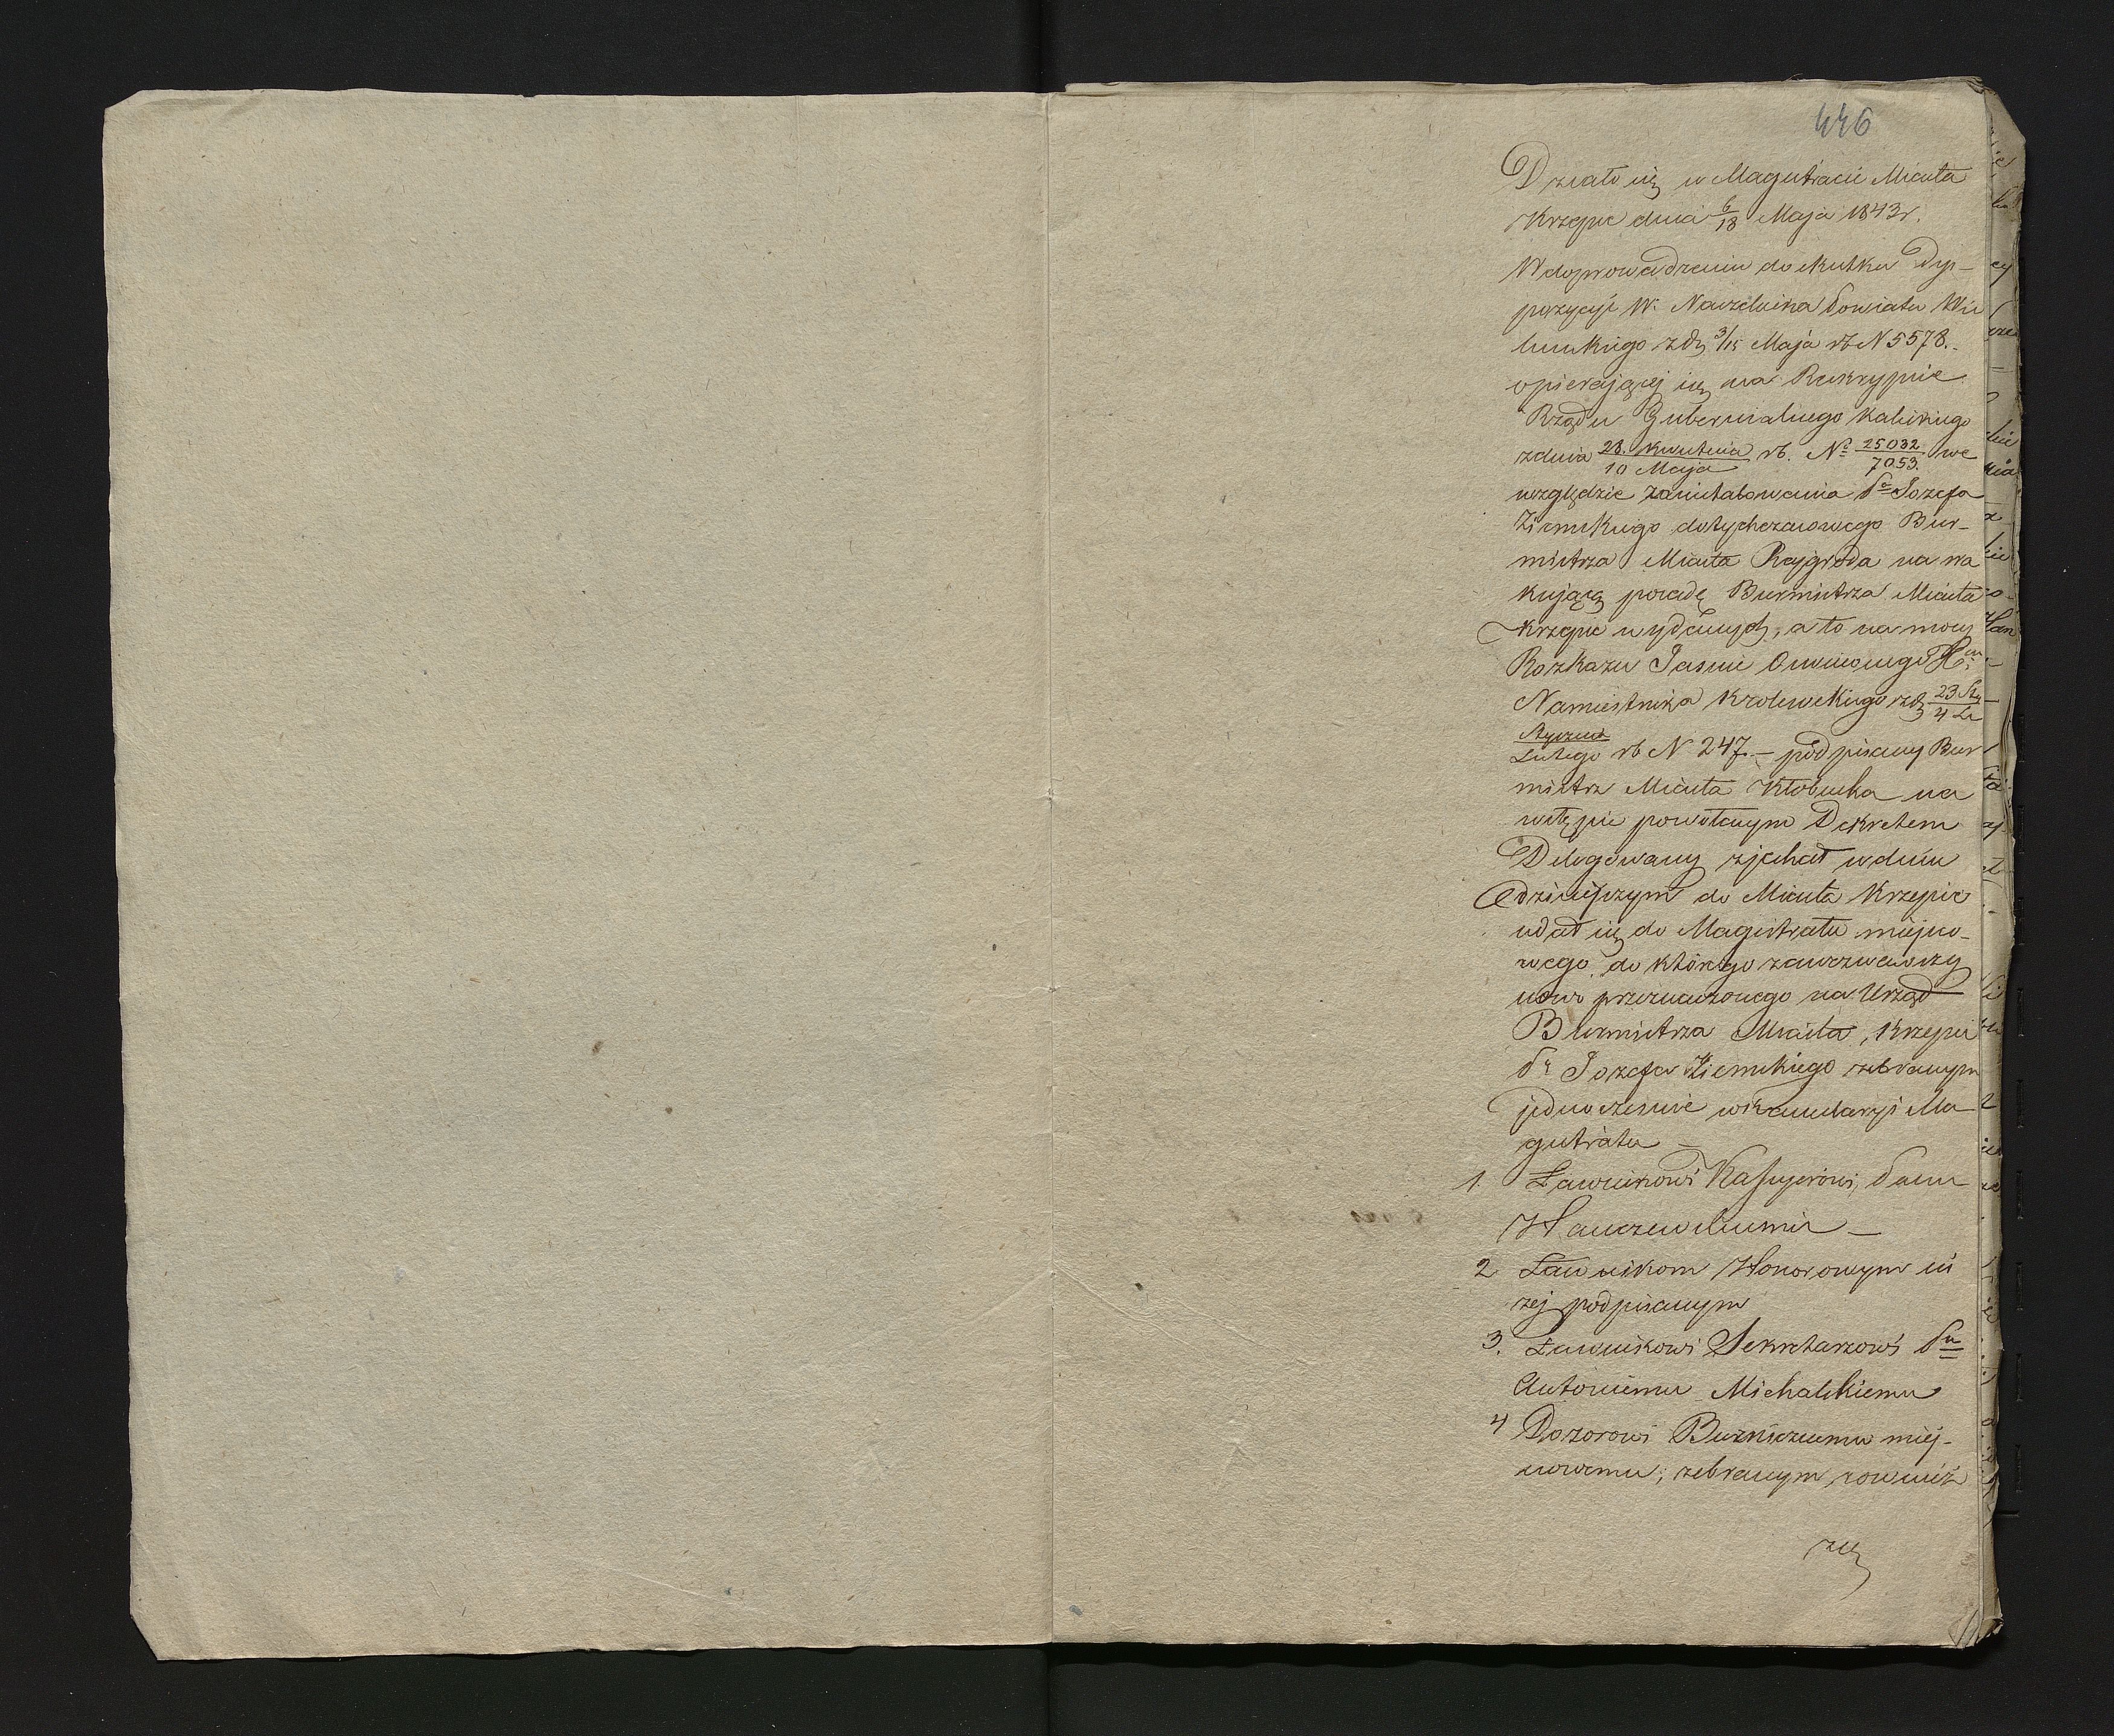 446
Działo się w Magistracie Miasta
Krzepic dnia 6/18 Maja 1843 r.
W doprowadzeniu do skutku Dys-
pozycyi W. Naczelnika Powiatu Wie
luńskiego z dn 3/15 Maja rb N 5578.
opierającej się na Reskrypcie
Rządu Gubernialnego Kaliskiego
z dnia 28. Kwietnia/10 Maja rb. No 25032/7053. we
względzie zainstalowania Pa Jozefa
Ziemskiego dotychczasowego Bur-
mistrza Miasta Rajgroda na wa
kującą posadę Burmistrza Miasta
Krzepic wydanych, a to na mocy
Rozkazu Jasnie Oswieconego
Namiestnika Krolewskiego z d 23 Sty/4 Lu
Stycznia/Lutego rb N 247 – podpisany Bur
mistrz Miasta Kłobucka na
wstępie powołanym Dekretem
Delegowany zjechał w dniu
dzisiejszym do Miasta Krzepic
udał się do Magistratu miejsco-
wego, do którego zawezwawszy
nowo przeznaczonego na Urząd
Burmistrza Miasta, Krzepic
Pa Jozefa Ziemskiego zebranym
jednocześnie w kancelaryi Ma
gistratu –
1. Ławnikowi Kassyerowi, Panu
Hanczewskiemu –
2 Ławnikom Honorowym ni
żej podpisanym
3. Ławnikowi Sekretarzowi Pu
Antoniemu Michalskiemu
4 Dozorowi Bużniczemu miej-
scowemu; zebranym rownież